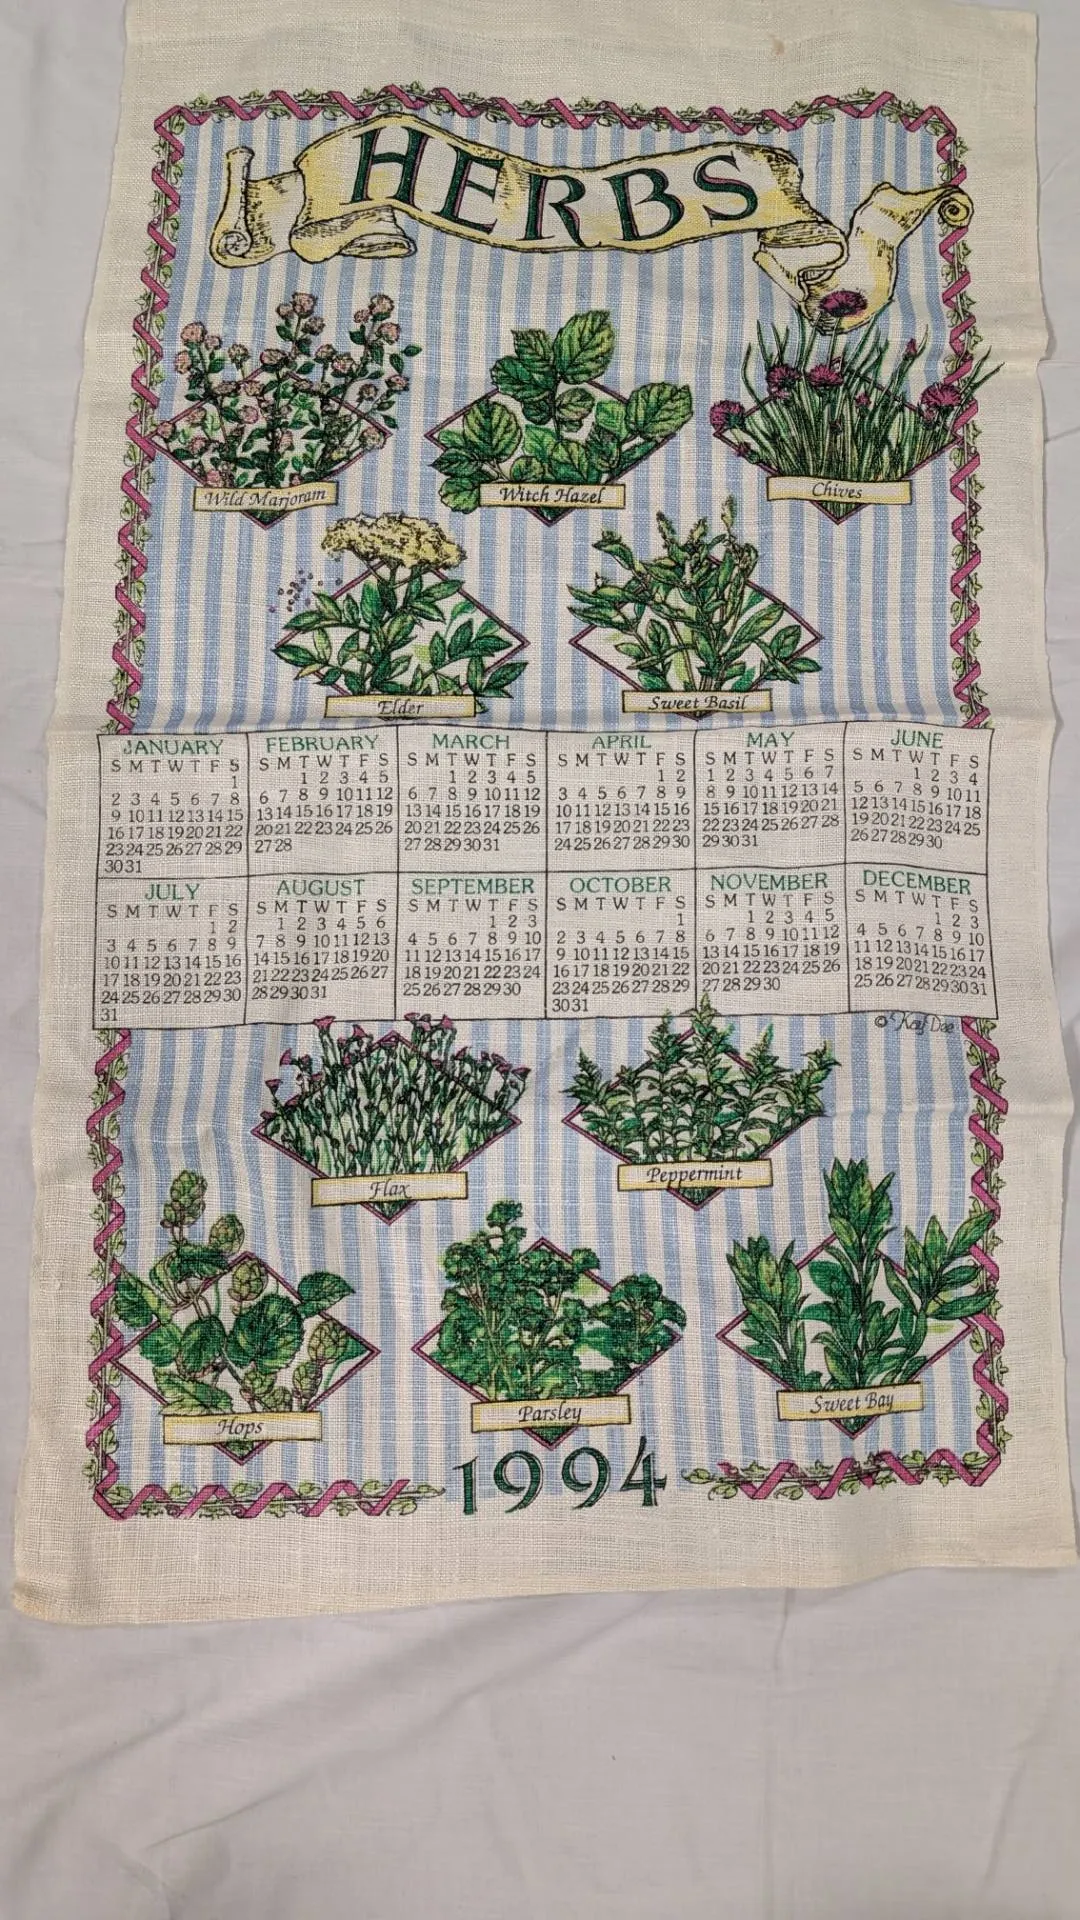 HERBS
Wild Marjoram
Witch Hazel
Chives
Elder
Sweet Basil
JANUARY
S M T W T F S
1
2 3 4 5 6 7 8
9 10 11 12 13 14 15
16 17 18 19 20 21 22
23 24 25 26 27 28 29
30 31
FEBRUARY
S M T W T F S
1 2 3 4 5
6 7 8 9 10 11 12
13 14 15 16 17 18 19
20 21 22 23 24 25 26
27 28
MARCH
S M T W T F S
1 2 3 4 5
6 7 8 9 10 11 12
13 14 15 16 17 18 19
20 21 22 23 24 25 26
27 28 29 30 31
APRIL
S M T W T F S
1 2
3 4 5 6 7 8 9
10 11 12 13 14 15 16
17 18 19 20 21 22 23
24 25 26 27 28 29 30
MAY
S M T W T F S
1 2 3 4 5 6 7
8 9 10 11 12 13 14
15 16 17 18 19 20 21
22 23 24 25 26 27 28
29 30 31
JUNE
S M T W T F S
1 2 3 4
5 6 7 8 9 10 11
12 13 14 15 16 17 18
19 20 21 22 23 24 25
26 27 28 29 30
JULY
S M T W T F S
1 2
3 4 5 6 7 8 9
10 11 12 13 14 15 16
17 18 19 20 21 22 23
24 25 26 27 28 29 30
31
AUGUST
S M T W T F S
1 2 3 4 5 6
7 8 9 10 11 12 13
14 15 16 17 18 19 20
21 22 23 24 25 26 27
28 29 30 31
SEPTEMBER
S M T W T F S
1 2 3
4 5 6 7 8 9 10
11 12 13 14 15 16 17
18 19 20 21 22 23 24
25 26 27 28 29 30
OCTOBER
S M T W T F S
1
2 3 4 5 6 7 8
9 10 11 12 13 14 15
16 17 18 19 20 21 22
23 24 25 26 27 28 29
30 31
NOVEMBER
S M T W T F S
1 2 3 4 5
6 7 8 9 10 11 12
13 14 15 16 17 18 19
20 21 22 23 24 25 26
27 28 29 30
DECEMBER
S M T W T F S
1 2 3
4 5 6 7 8 9 10
11 12 13 14 15 16 17
18 19 20 21 22 23 24
25 26 27 28 29 30 31
© Kay Dee
Flax
Peppermint
Hops
Parsley
Sweet Bay
1994